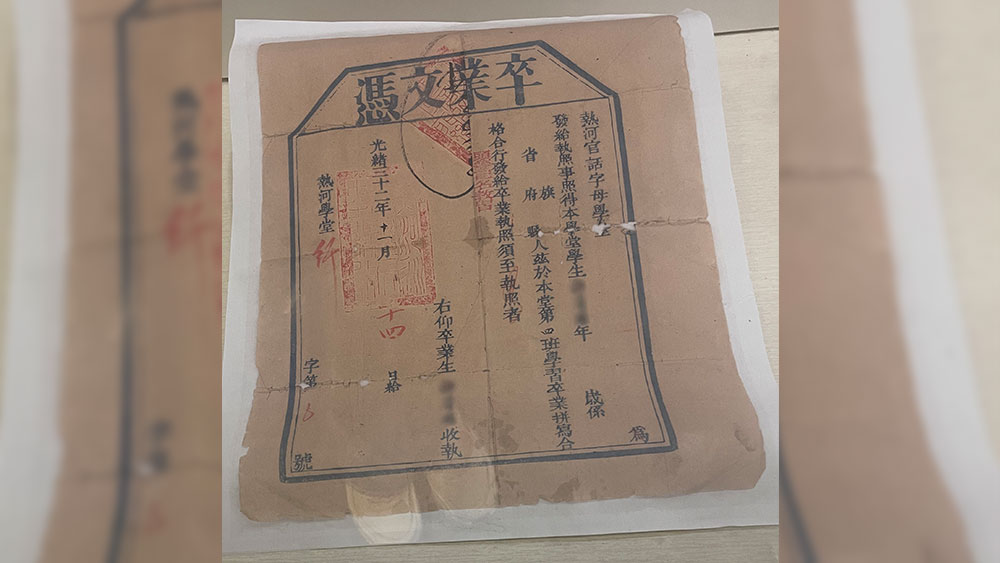 卒業文憑
熱河官話字母學堂 爲
發給執照事照得本學堂學生 年 歲係
省 府 旗 縣人茲於本堂第四班學習卒業拼寫合
格合行發給卒業執照須至執照者
右仰卒業生 收執
光緒三十二年十一月 十四 日給
熱河學堂 行 字第 號